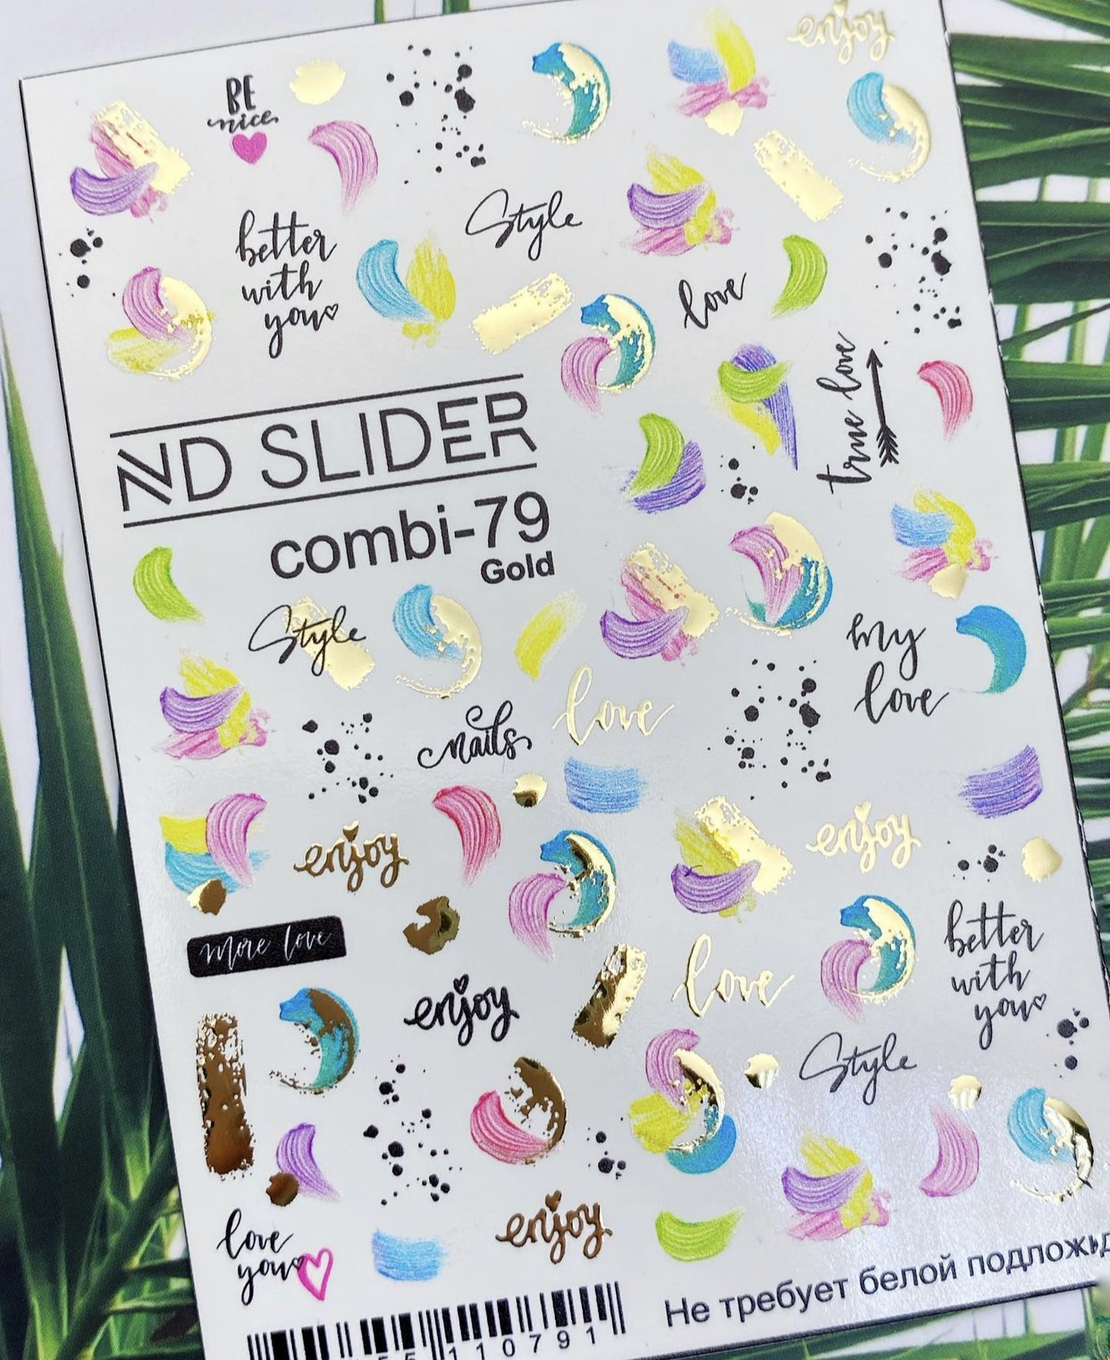 enjoy
BE
nice
Style
better
with
you
love
true love
ND SLIDER
combi-79
Gold
Style
my
love
nails
love
enjoy
enjoy
more love
better
with
you
love
enjoy
Style
enjoy
love
you
Не требует белой
110791